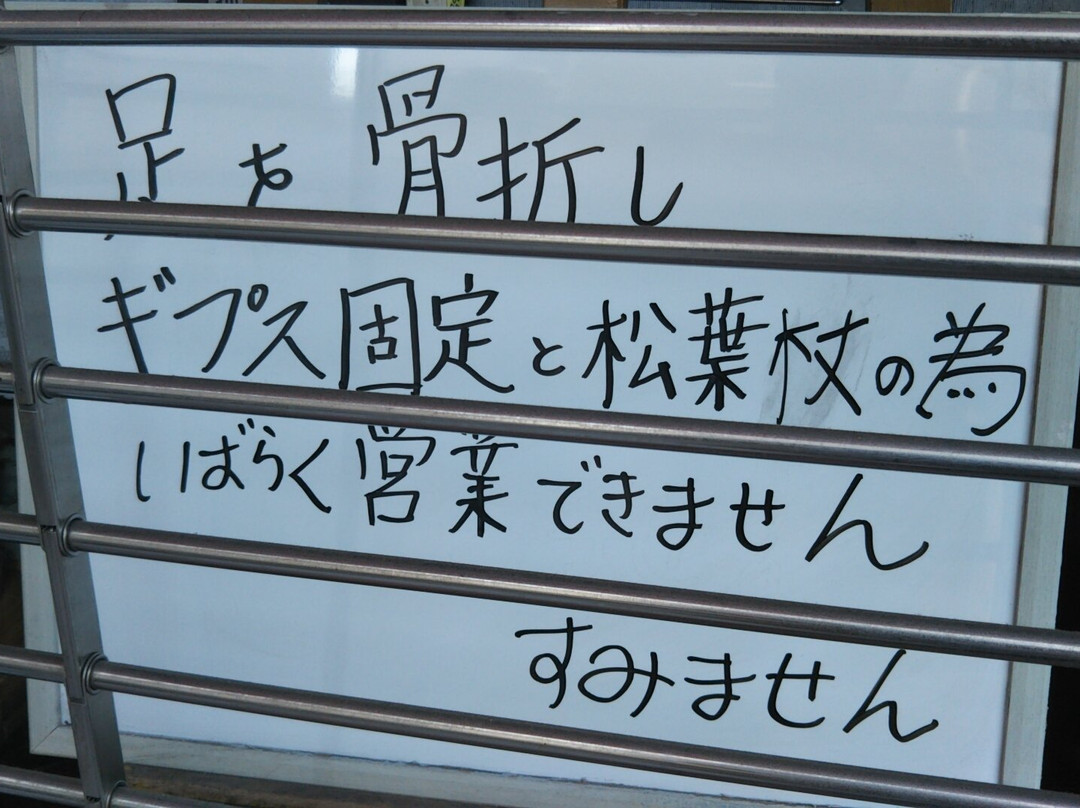 足を骨折し
ギプス固定と松葉杖の為
しばらく営業できません
すみません